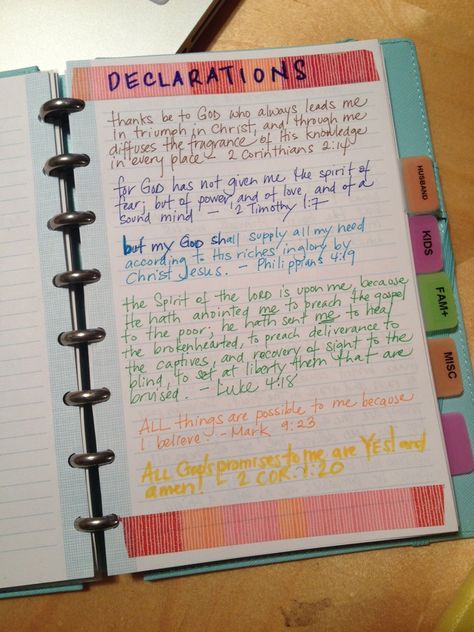 DECLARATIONS
thanks be to GOD who always leads me
in triumph in Christ, and through me
diffuses the fragrance of His knowledge
in every place - 2 Corinthians 2:14
for GOD has not given me the spirit of
fear; but of power, and of love, and of a
sound mind - 2 Timothy 1:7
but my GOD shall supply all my need
according to His riches in glory by
Christ Jesus. - Philippians 4:19
the Spirit of the LORD is upon me, because
He hath anointed me to preach the gospel
to the poor; he hath sent me to heal
the brokenhearted, to preach deliverance to
the captives, and recovery of sight to the
blind, to set at liberty them that are
bruised. - Luke 4:18
ALL things are possible to me because
I believe - Mark 9:23
ALL God's promises to me are YES! and
amen! - 2 COR. 1:20
HUSBAND
KIDS
FAM+
MISC